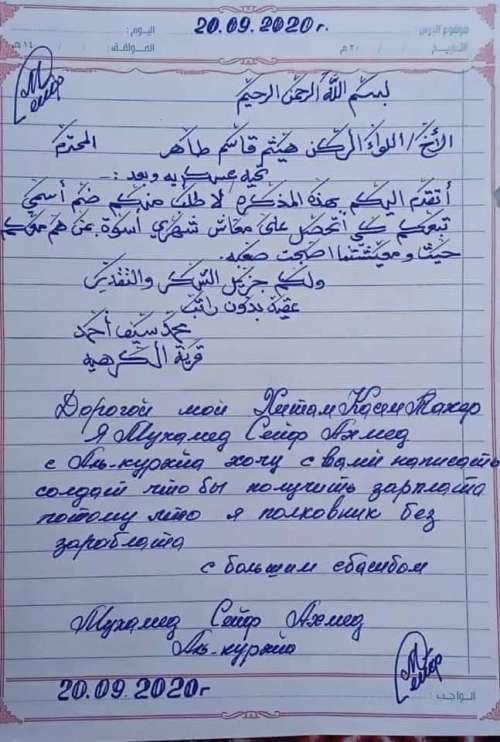 20.09.2020г
موضوع الدرس: اليوم:
التاريخ / / ٢٠م الموافق: / / ١٤هـ
بسم الله الرحمن الرحيم
الأخ/ اللواء الركن هيثم قاسم طاهر المحترم
تحيه عسكريه وبعد :ـ
أتقدم اليكم بهذه المذكره لاطلب منكم ضم أسمي
تبعكم كي أتحصل على معاش شهري أسوة بمن هم معكم
حيث ومعيشتنا اصبحت صعبه.
ولكم جزيل الشكر والتقدير
عقيد بدون راتب
محمد سيف أحمد
قرية الكرهيه
Дорогой мой Хитам Касем Тахер
Я Мухамед Сейф Ахмед
с Аль-курхйа хочу с вами написать
солдат что бы получить зарплата
потому что я полковник без
зароблата
с большим сбасибом
Мухамед Сейф Ахмед
Аль-курхйа
20.09.2020г
الواجب: